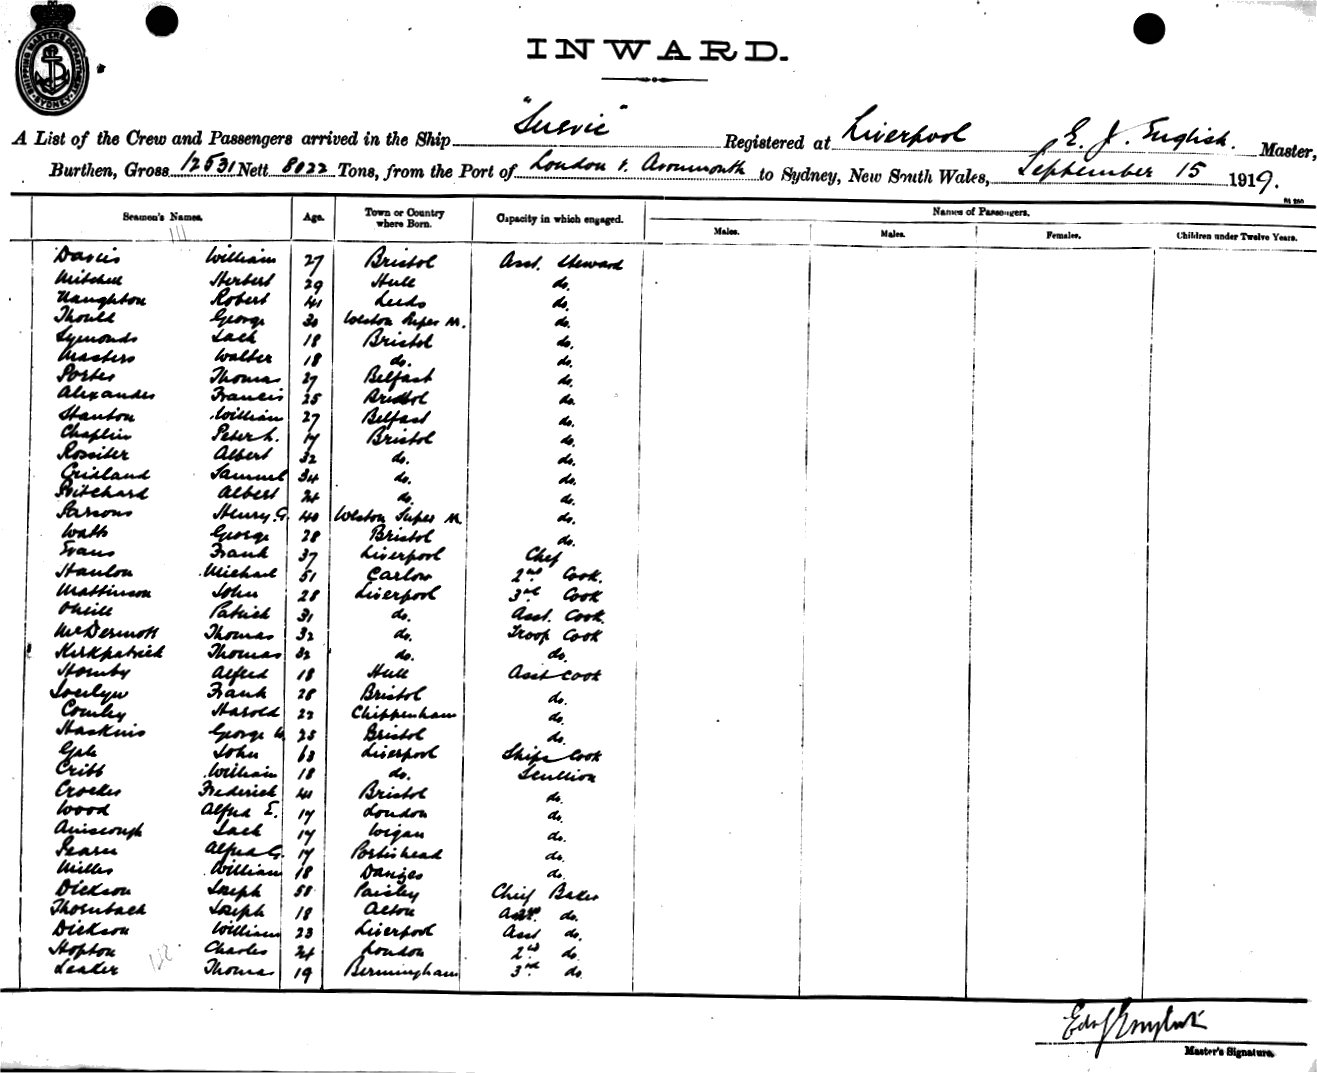 SHIPPING MASTERS DEPARTMENT SYDNEY
INWARD.
A List of the Crew and Passengers arrived in the Ship "Suevic" Registered at Liverpool E. J. English. Master,
Burthen, Gross 12531 Nett 8022 Tons, from the Port of London & Avonmouth to Sydney, New South Wales, September 15 1919.
Seamen's Names. Age. Town or Country where Born. Capacity in which engaged. Names of Passengers.
Males. Males. Females. Children under Twelve Years.
Davies William 27 Bristol Asst. Steward
Mitchell Herbert 29 Hull do.
Naughton Robert 41 Leeds do.
Thould George 30 Weston Super M. do.
Symonds Jack 18 Bristol do.
Masters Walter 18 do. do.
Porter Thomas 27 Belfast do.
Alexander Francis 25 Bristol do.
Stanton William 27 Belfast do.
Chaplin Peter L. 17 Bristol do.
Rossiter Albert 32 do. do.
Cridland Samuel 34 do. do.
Pritchard Albert 24 do. do.
Parsons Henry G. 40 Weston Super M. do.
Watts George 28 Bristol do.
Evans Frank 37 Liverpool Chef
Hanlon Michael 51 Carlow 2nd Cook.
Mattinson John 28 Liverpool 3rd Cook
O'Neill Patrick 31 do. Asst. Cook.
McDermott Thomas 32 do. Troop Cook
Kirkpatrick Thomas 32 do. do.
Hornby Alfred 18 Hull Asst Cook
Jocelyn Frank 28 Bristol do.
Comley Harold 22 Chippenham do.
Haskins George W. 25 Bristol do.
Gale John 63 Liverpool Ships Cook
Cribb William 18 do. Scullion
Crocker Frederick 41 Bristol do.
Wood Alfred E. 17 London do.
Ainscough Jack 17 Wigan do.
Pearce Alfred G. 17 Portishead do.
Miller William 18 do.
Dickson Joseph 58 Paisley Chief Baker
Thornback Joseph 18 Alton do.
Dickson William 23 Liverpool Asst do.
Hopton Charles 24 London 2nd do.
Leaker Thomas 19 Bermingham 3rd do.
Edw J English
Master's Signature.